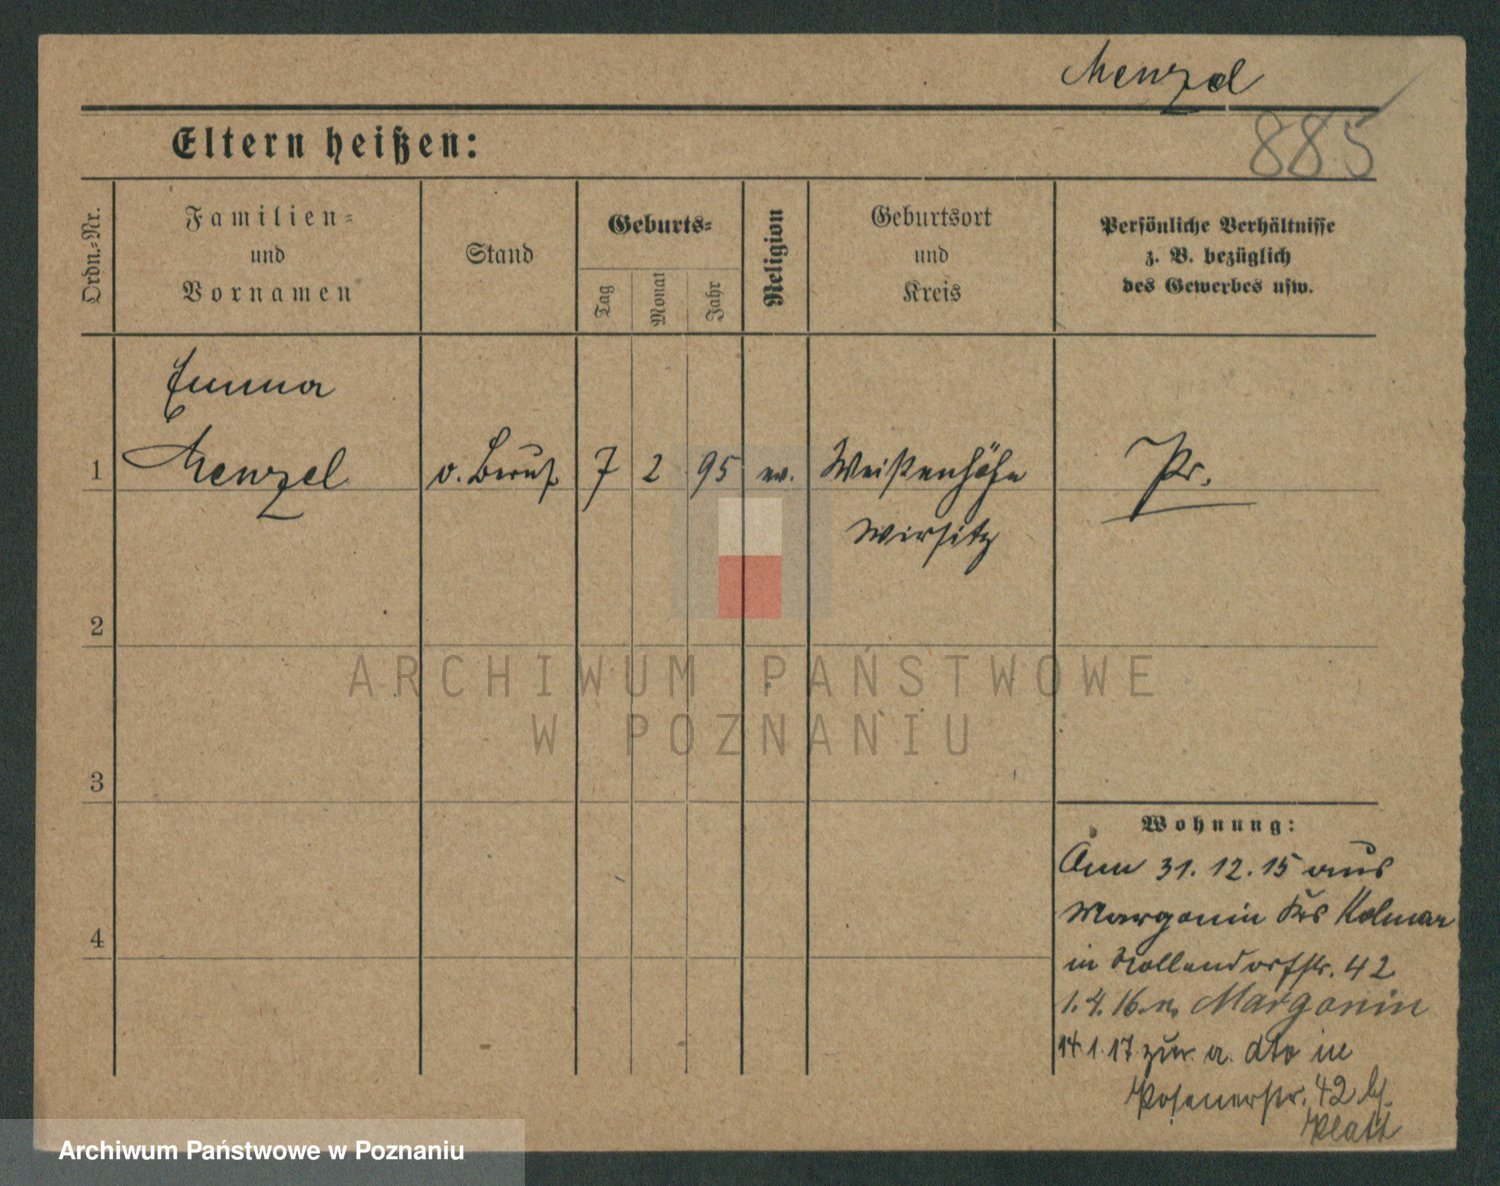 Menzel
Eltern heißen:
885
Ordn.=Nr.
Familien=
und
Vornamen
Stand
Geburts=
Tag
Monat
Jahr
Religion
Geburtsort
und
Kreis
Persönliche Verhältnisse
z. B. bezüglich
des Gewerbes usw.
Emma
1 Menzel o. Beruf 7 2 95 ev. Weißenhöhe Pr.
Wirsitz
2
3
4
Wohnung:
Am 31. 12. 15 aus
Margonin Krs Kolmar
in Nollendorfstr. 42
1. 4. 16. n. Margonin
14. 1. 17 zur. a. dto in
Posenerstr. 42 b.
Platt
ARCHIWUM PAŃSTWOWE
W POZNANIU
Archiwum Państwowe w Poznaniu